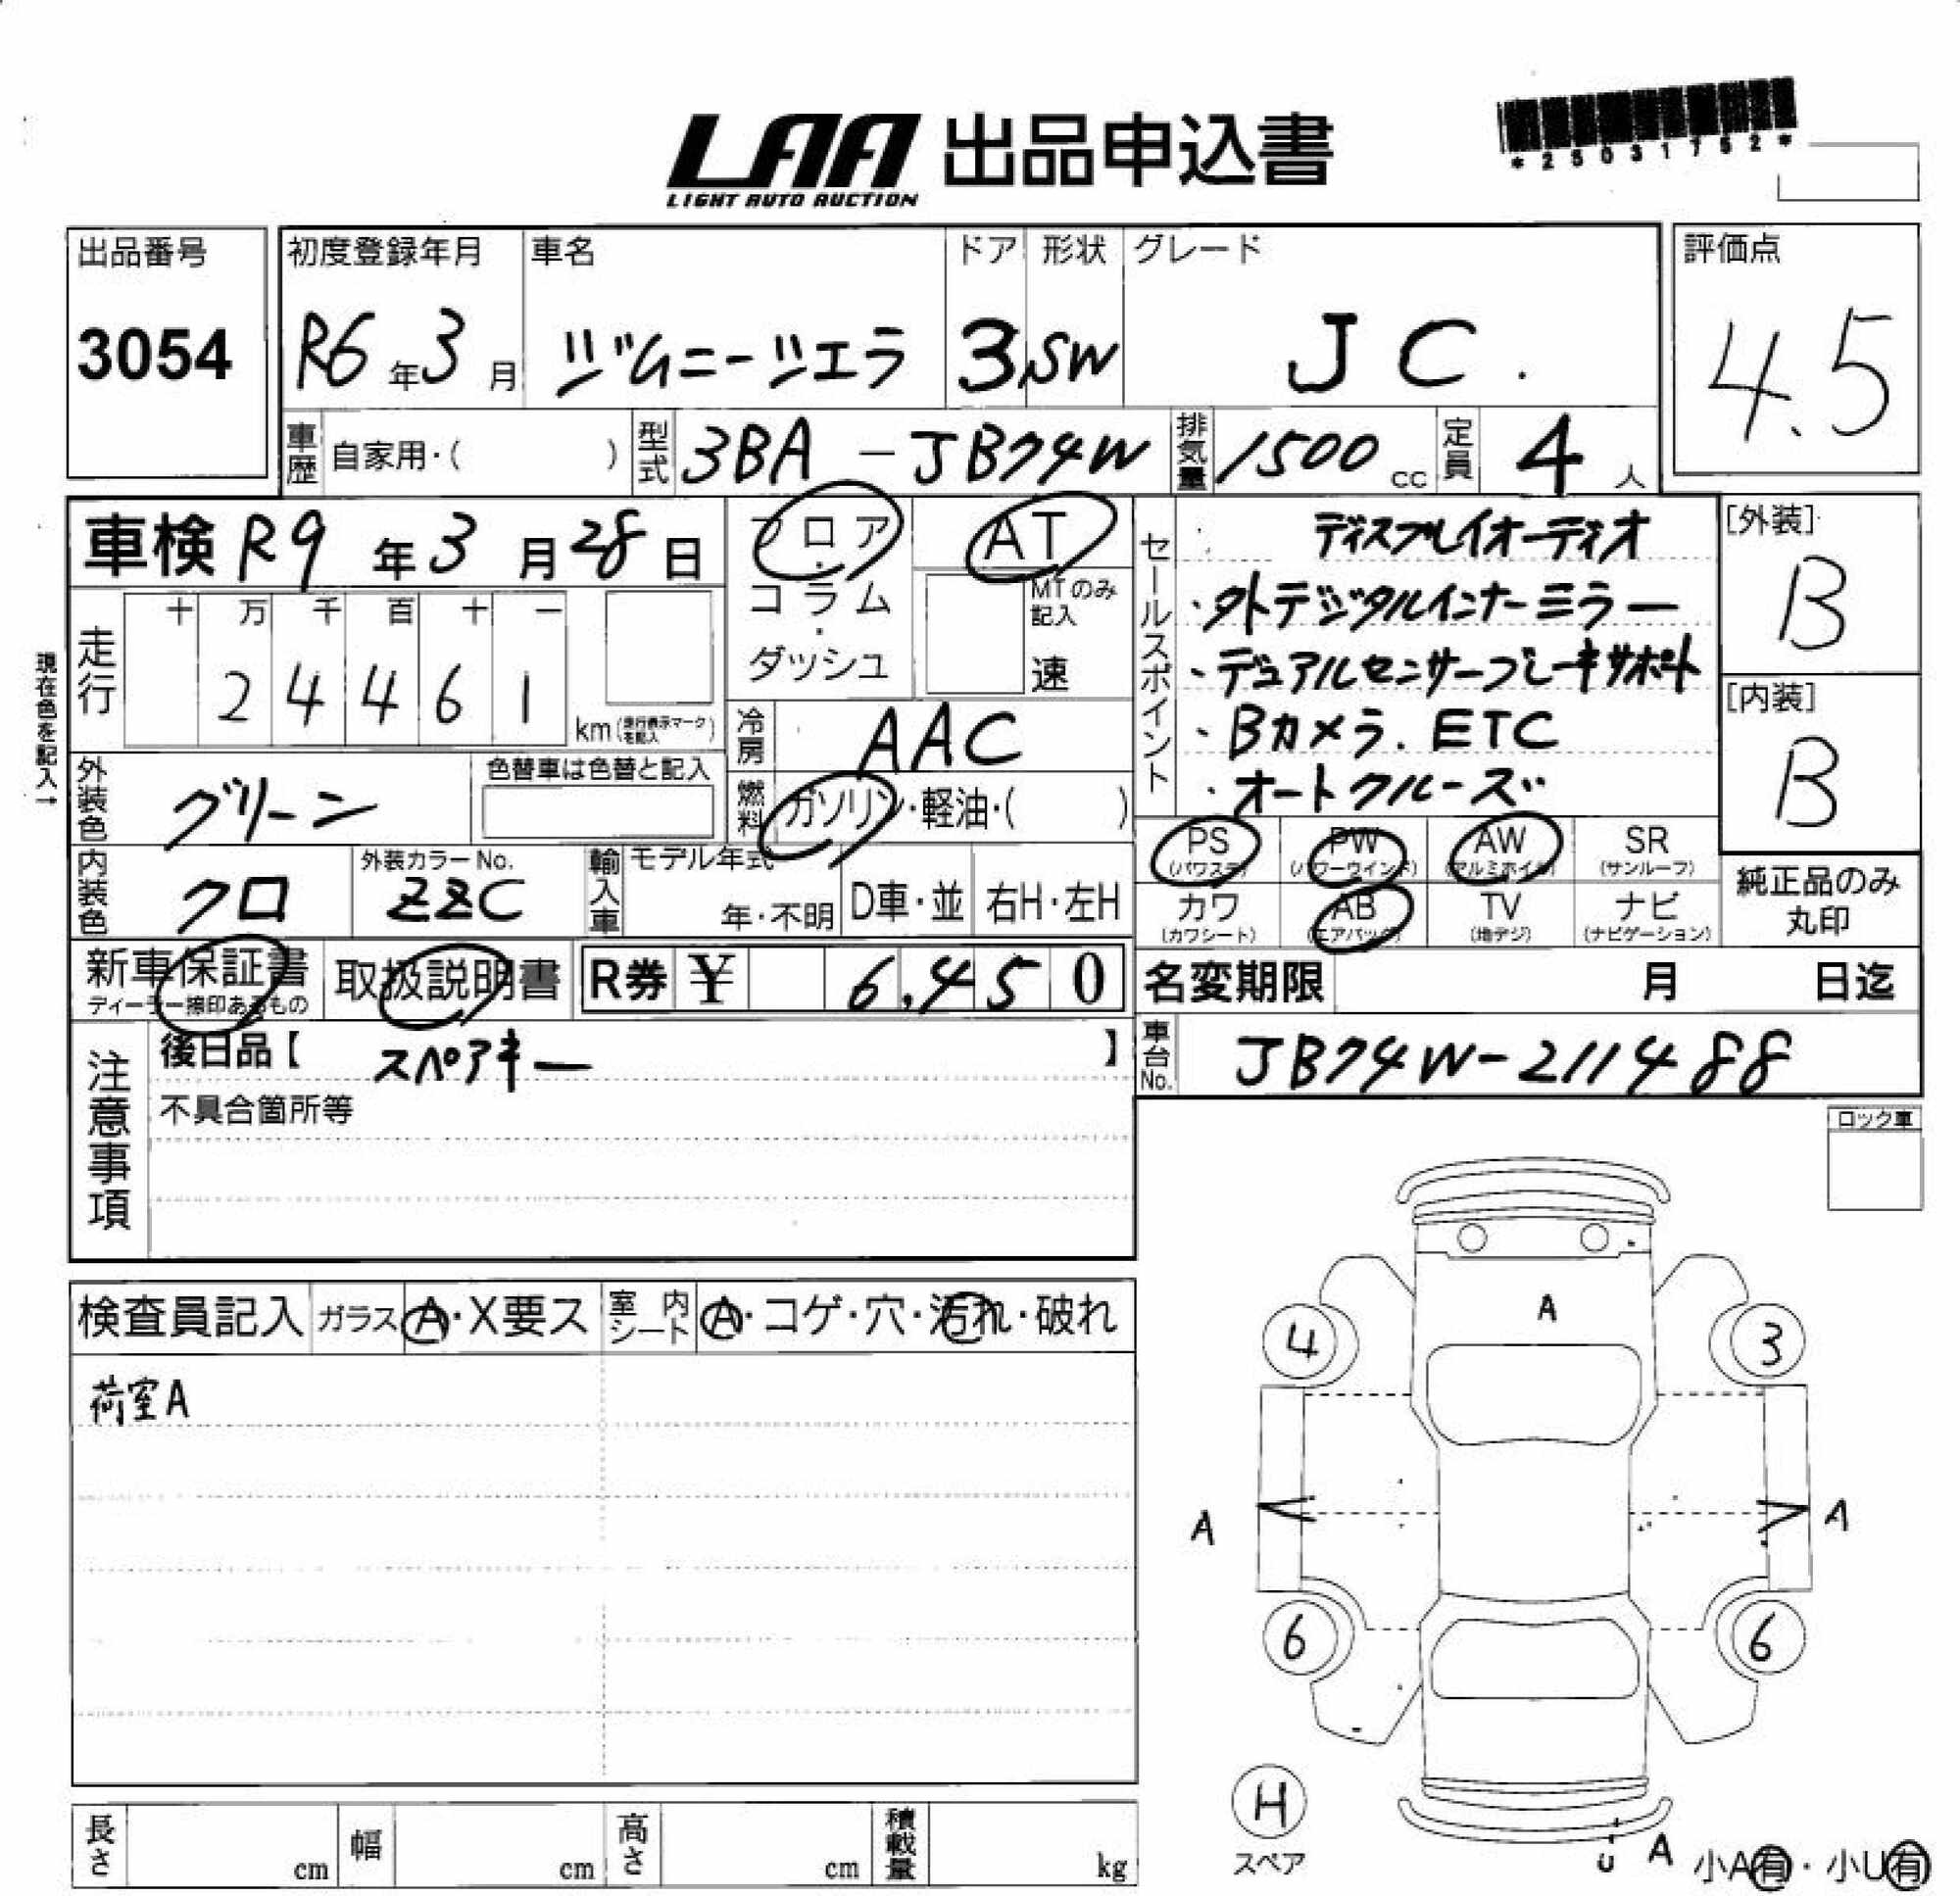 LAA 出品申込書
LIGHT AUTO AUCTION
*25031752*
出品番号
3054
初度登録年月 車名 ドア 形状 グレード
R6年3月 ジムニーシエラ 3 SW JC.
評価点
4.5
車歴 自家用・( ) 型式 3BA-JB74W 排気量 1500cc 定員 4人
車検 R9年3月28日
フロア・コラム・ダッシュ
AT
MTのみ記入
速
セールスポイント
ディスプレイオーディオ
・外デジタルインナーミラー
・デュアルセンサーブレーキサポート
・Bカメラ.ETC
・オートクルーズ
[外装]
B
[内装]
B
現在色を記入→
走行 十 万 千 百 十 一
2 4 4 6 1 km (走行表示マークを記入)
冷房 AAC
外装色 グリーン 色替車は色替と記入
燃料 ガソリン・軽油・( )
内装色 クロ 外装カラーNo. ZZC
輸入車 モデル年式 年・不明 D車・並 右H・左H
PS (パワステ) PW (パワーウインド) AW (アルミホイル) SR (サンルーフ)
カワ (カワシート) AB (エアバッグ) TV (地デジ) ナビ (ナビゲーション)
純正品のみ丸印
新車保証書 取扱説明書 R券 ¥ 6,450
ディーラー捺印あるもの
名変期限 月 日迄
車台No. JB74W-211488
注意事項
後日品【 スペアキー 】
不具合箇所等
ロック車
検査員記入 ガラス A・X要ス 室内シート A・コゲ・穴・汚れ・破れ
荷室A
A
4 3
A A
6 6
H
スペア
U A 小A有・小U有
長さ cm 幅 cm 高さ cm 積載量 kg